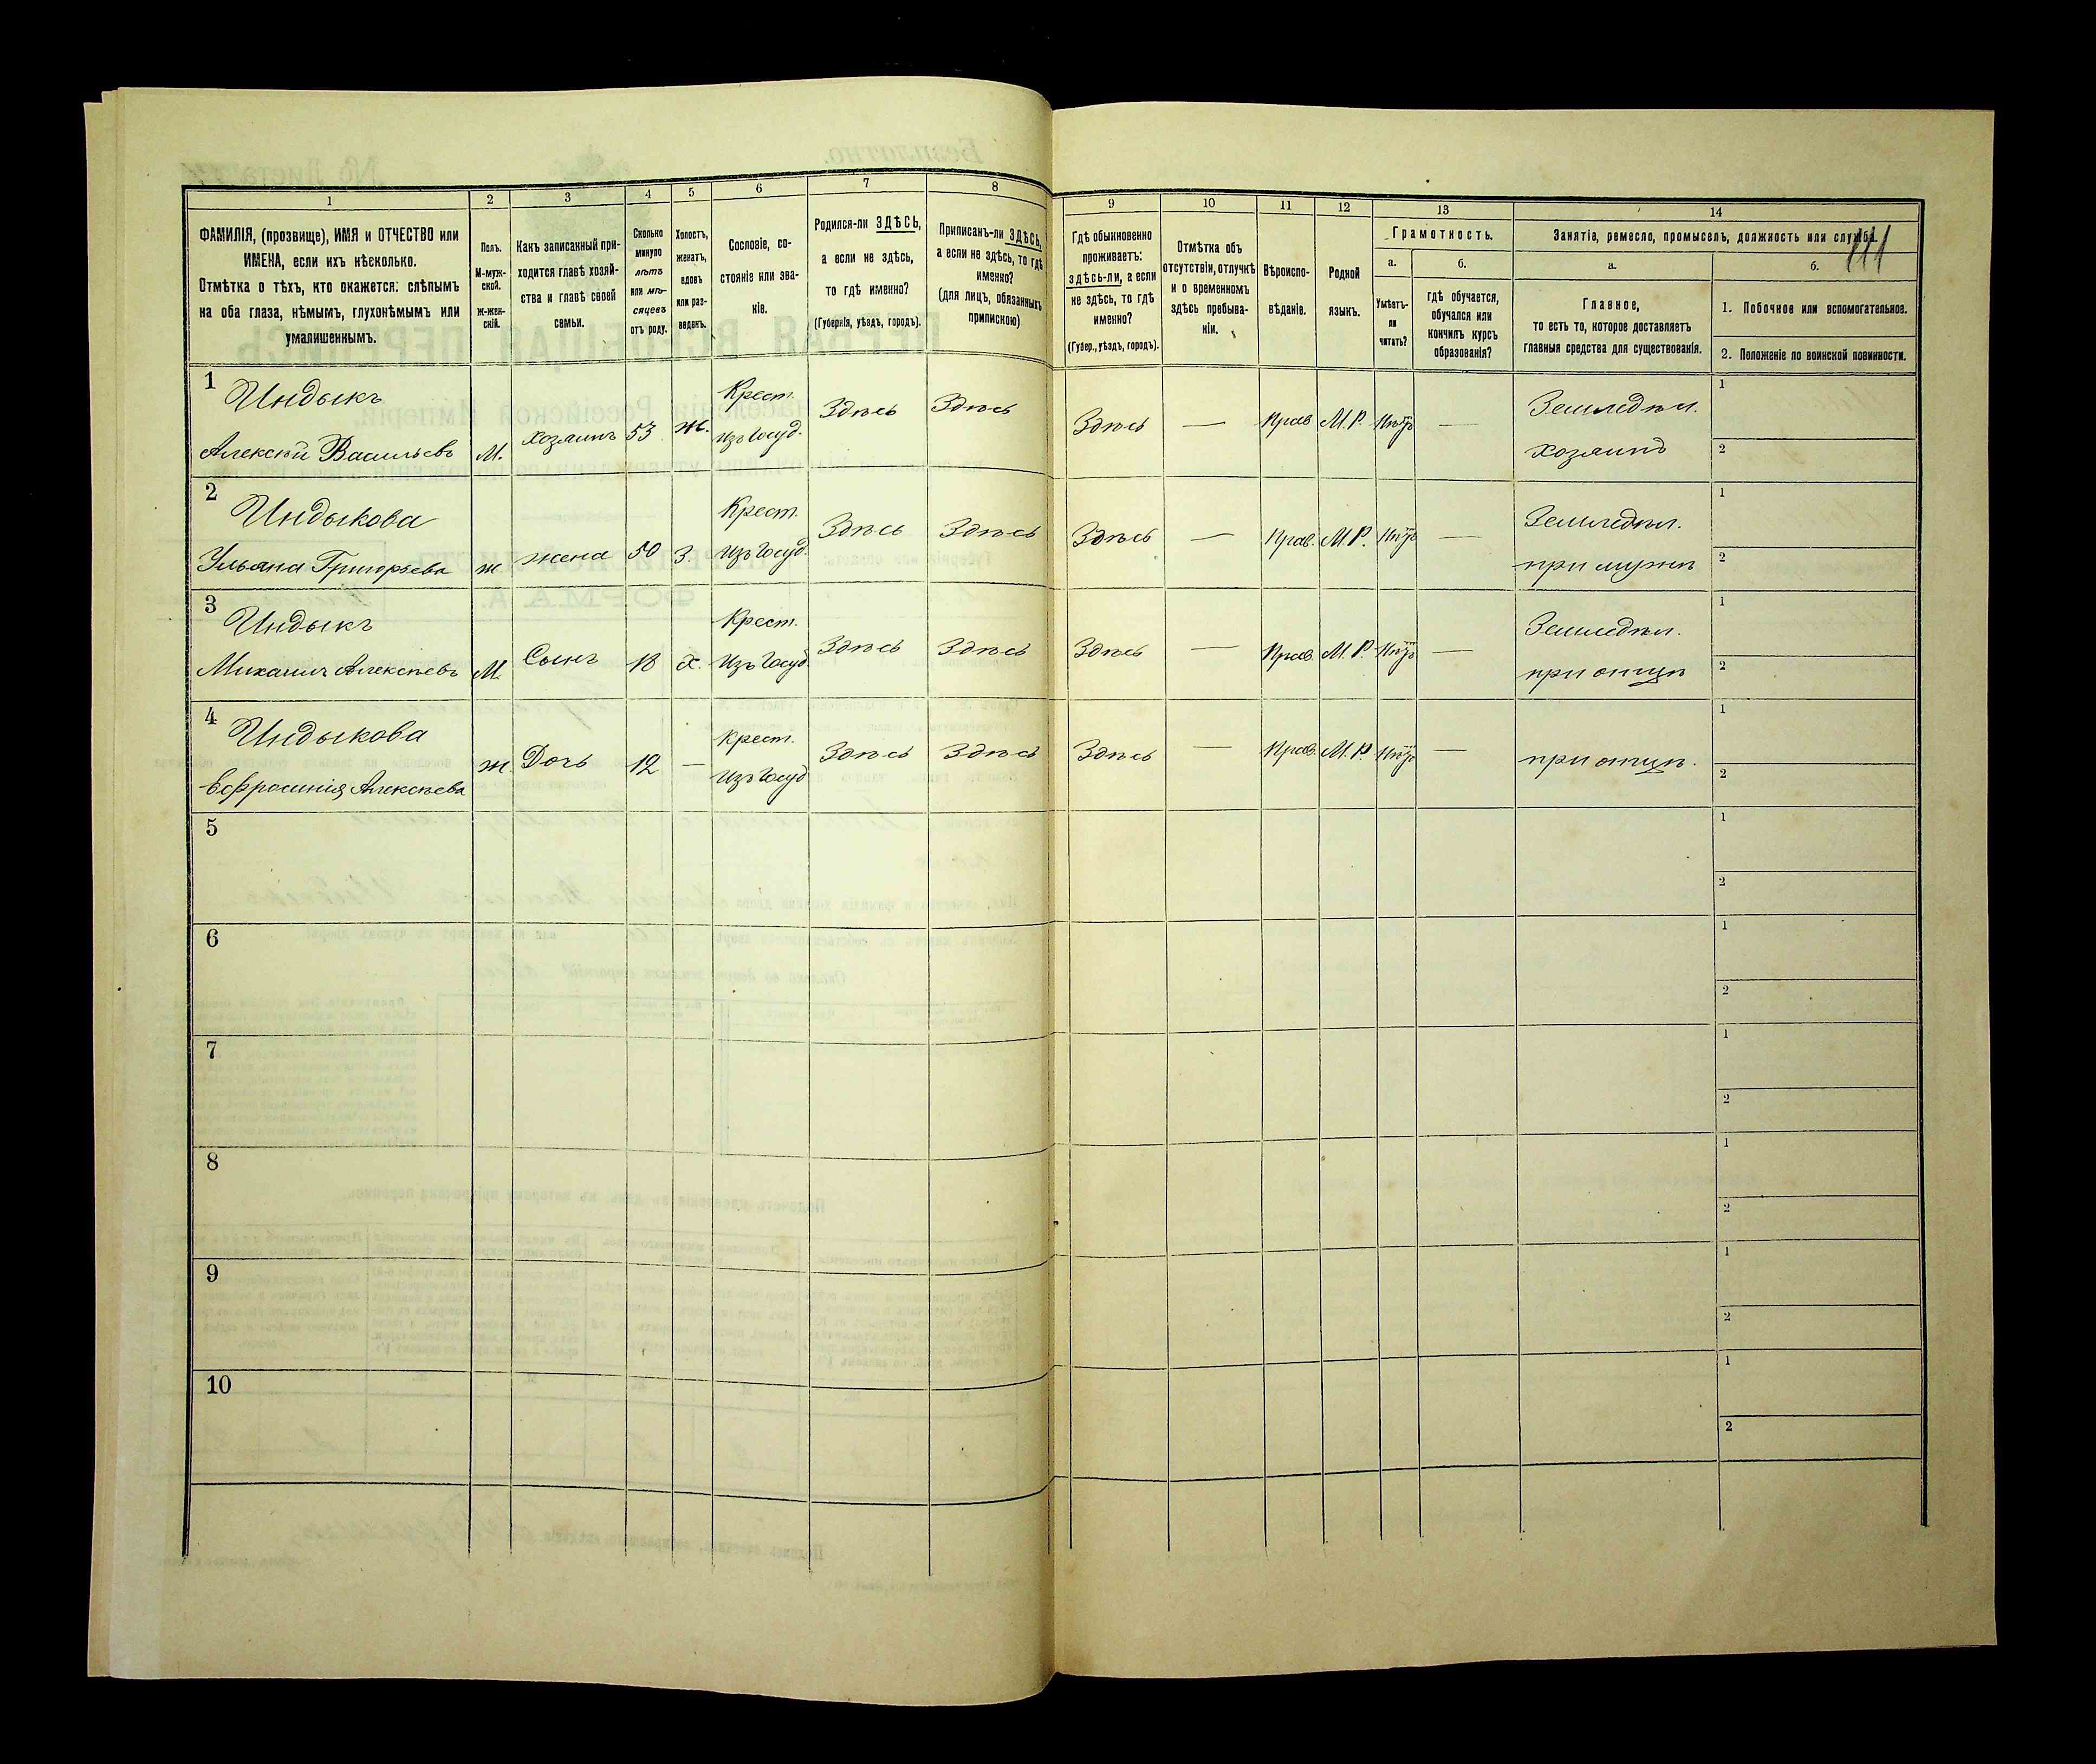 1 2 3 4 5 6 7 8
ФАМИЛІЯ, (прозвище), ИМЯ и ОТЧЕСТВО или
ИМЕНА, если ихъ нѣсколько.
Отмѣтка о тѣхъ, кто окажется: слѣпымъ
на оба глаза, нѣмымъ, глухонѣмымъ или
умалишеннымъ.
Полъ.
М-муж-
ской.
Ж-жен-
скій.
Какъ записанный при-
ходится главѣ хозяй-
ства и главѣ своей
семьи.
Сколько
минуло
лѣтъ
или мѣ-
сяцевъ
отъ роду.
Холостъ,
женатъ,
вдовъ
или раз-
веденъ.
Сословіе, со-
стояніе или зва-
ніе.
Родился-ли ЗДѢСЬ,
а если не здѣсь,
то гдѣ именно?
(Губернія, уѣздъ, городъ).
Приписанъ-ли ЗДѢСЬ,
а если не здѣсь, то гдѣ
именно?
(для лицъ, обязанныхъ
припискою)
9 10 11 12 13 14
Гдѣ обыкновенно
проживаетъ:
здѣсь-ли, а если
не здѣсь, то гдѣ
именно?
(Губер., уѣздъ, городъ).
Отмѣтка объ
отсутствіи, отлучкѣ
и о временномъ
здѣсь пребыва-
ніи.
Вѣроиспо-
вѣданіе.
Родной
языкъ.
Грамотность.
а.
Умѣетъ-
ли
читать?
б.
гдѣ обучается,
обучался или
кончилъ курсъ
образованія?
Занятіе, ремесло, промыселъ, должность или служба.
111
а.
Главное,
то есть то, которое доставляетъ
главныя средства для существованія.
б.
1. Побочное или вспомогательное.
2. Положеніе по воинской повинности.
1 Индыкъ Крест. Здѣсь Здѣсь Здѣсь — Прав М.Р. Нѣтъ — Земледѣл. 1
Алексѣй Васильевъ М. хозяинъ 53 ж. изъ госуд. хозяинъ 2
2 Индыкова Крест. Здѣсь Здѣсь Здѣсь — Прав. М.Р. Нѣтъ — Земледѣл. 1
Ульяна Григорьева ж жена 50 З. изъ госуд. при мужѣ 2
3 Индыкъ Крест. Здѣсь Здѣсь Здѣсь — Прав. М.Р. Нѣтъ — Земледѣл. 1
Михаилъ Алексѣевъ М. Сынъ 18 х. изъ госуд. при отцѣ 2
4 Индыкова Крест. Здѣсь Здѣсь Здѣсь — Прав. М.Р. Нѣтъ — при отцѣ. 1
Евфросинія Алексѣева ж. Дочь 12 — изъ госуд 2
5 1
2
6 1
2
7 1
2
8 1
2
9 1
2
10 1
2